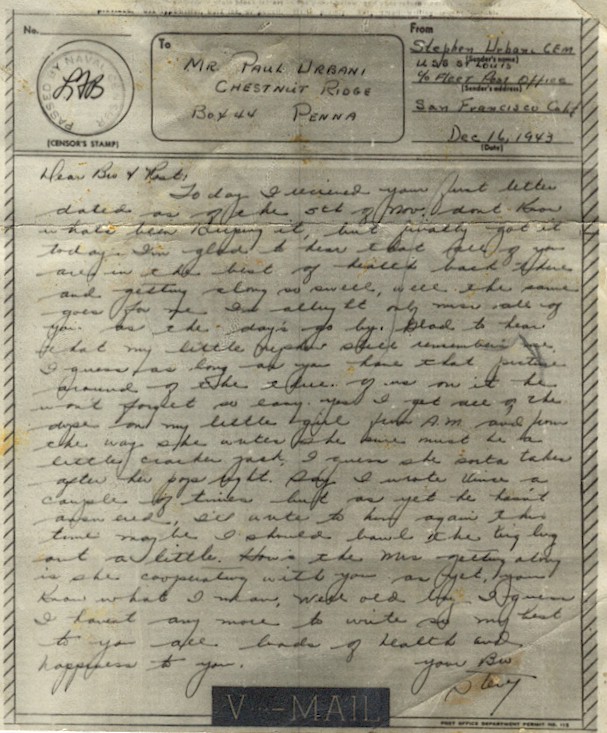 No.
PASSED BY NAVAL CENSOR
(CENSOR'S STAMP)
To
Mr Paul Urbani
Chestnut Ridge
Box 44 Penna
From
Stephen Urbani CEM
(Sender's name)
U.S.S St Louis
c/o Fleet Post Office
(Sender's address)
San Francisco Calif
Dec 16, 1943
(Date)
Dear Bro &
Today I recieved your letter
dated as of the 5th of Nov. dont know
whats been keeping it, but finally got it
today. I'm glad to hear that all of you
are in the best of health back there
and getting along so swell, well the same
goes for me I'm allright only miss all of
you as the days go by. Glad to hear
that my little nephew still remembers me.
I guess as long as you have that picture
around of the three of us on it he
wont forget so easy. yes I get all of the
dope on my little girl from A.M. and from
the way she writes she sure must be a
little cracker jack, I guess she sorta takes
after her pop right. Say I wrote Vince a
couple of times but as yet he hasn't
answered, I'll write to him again this
time maybe I should bawl the big lug
out a little. How's the Mrs getting along
is she cooperating with you as yet, you
know what I mean, Well old I guess
I havent any more to write so my best
to you all loads of health and
happiness to you. your Bro
Stevy
V-MAIL
POST OFFICE DEPARTMENT PERMIT NO.